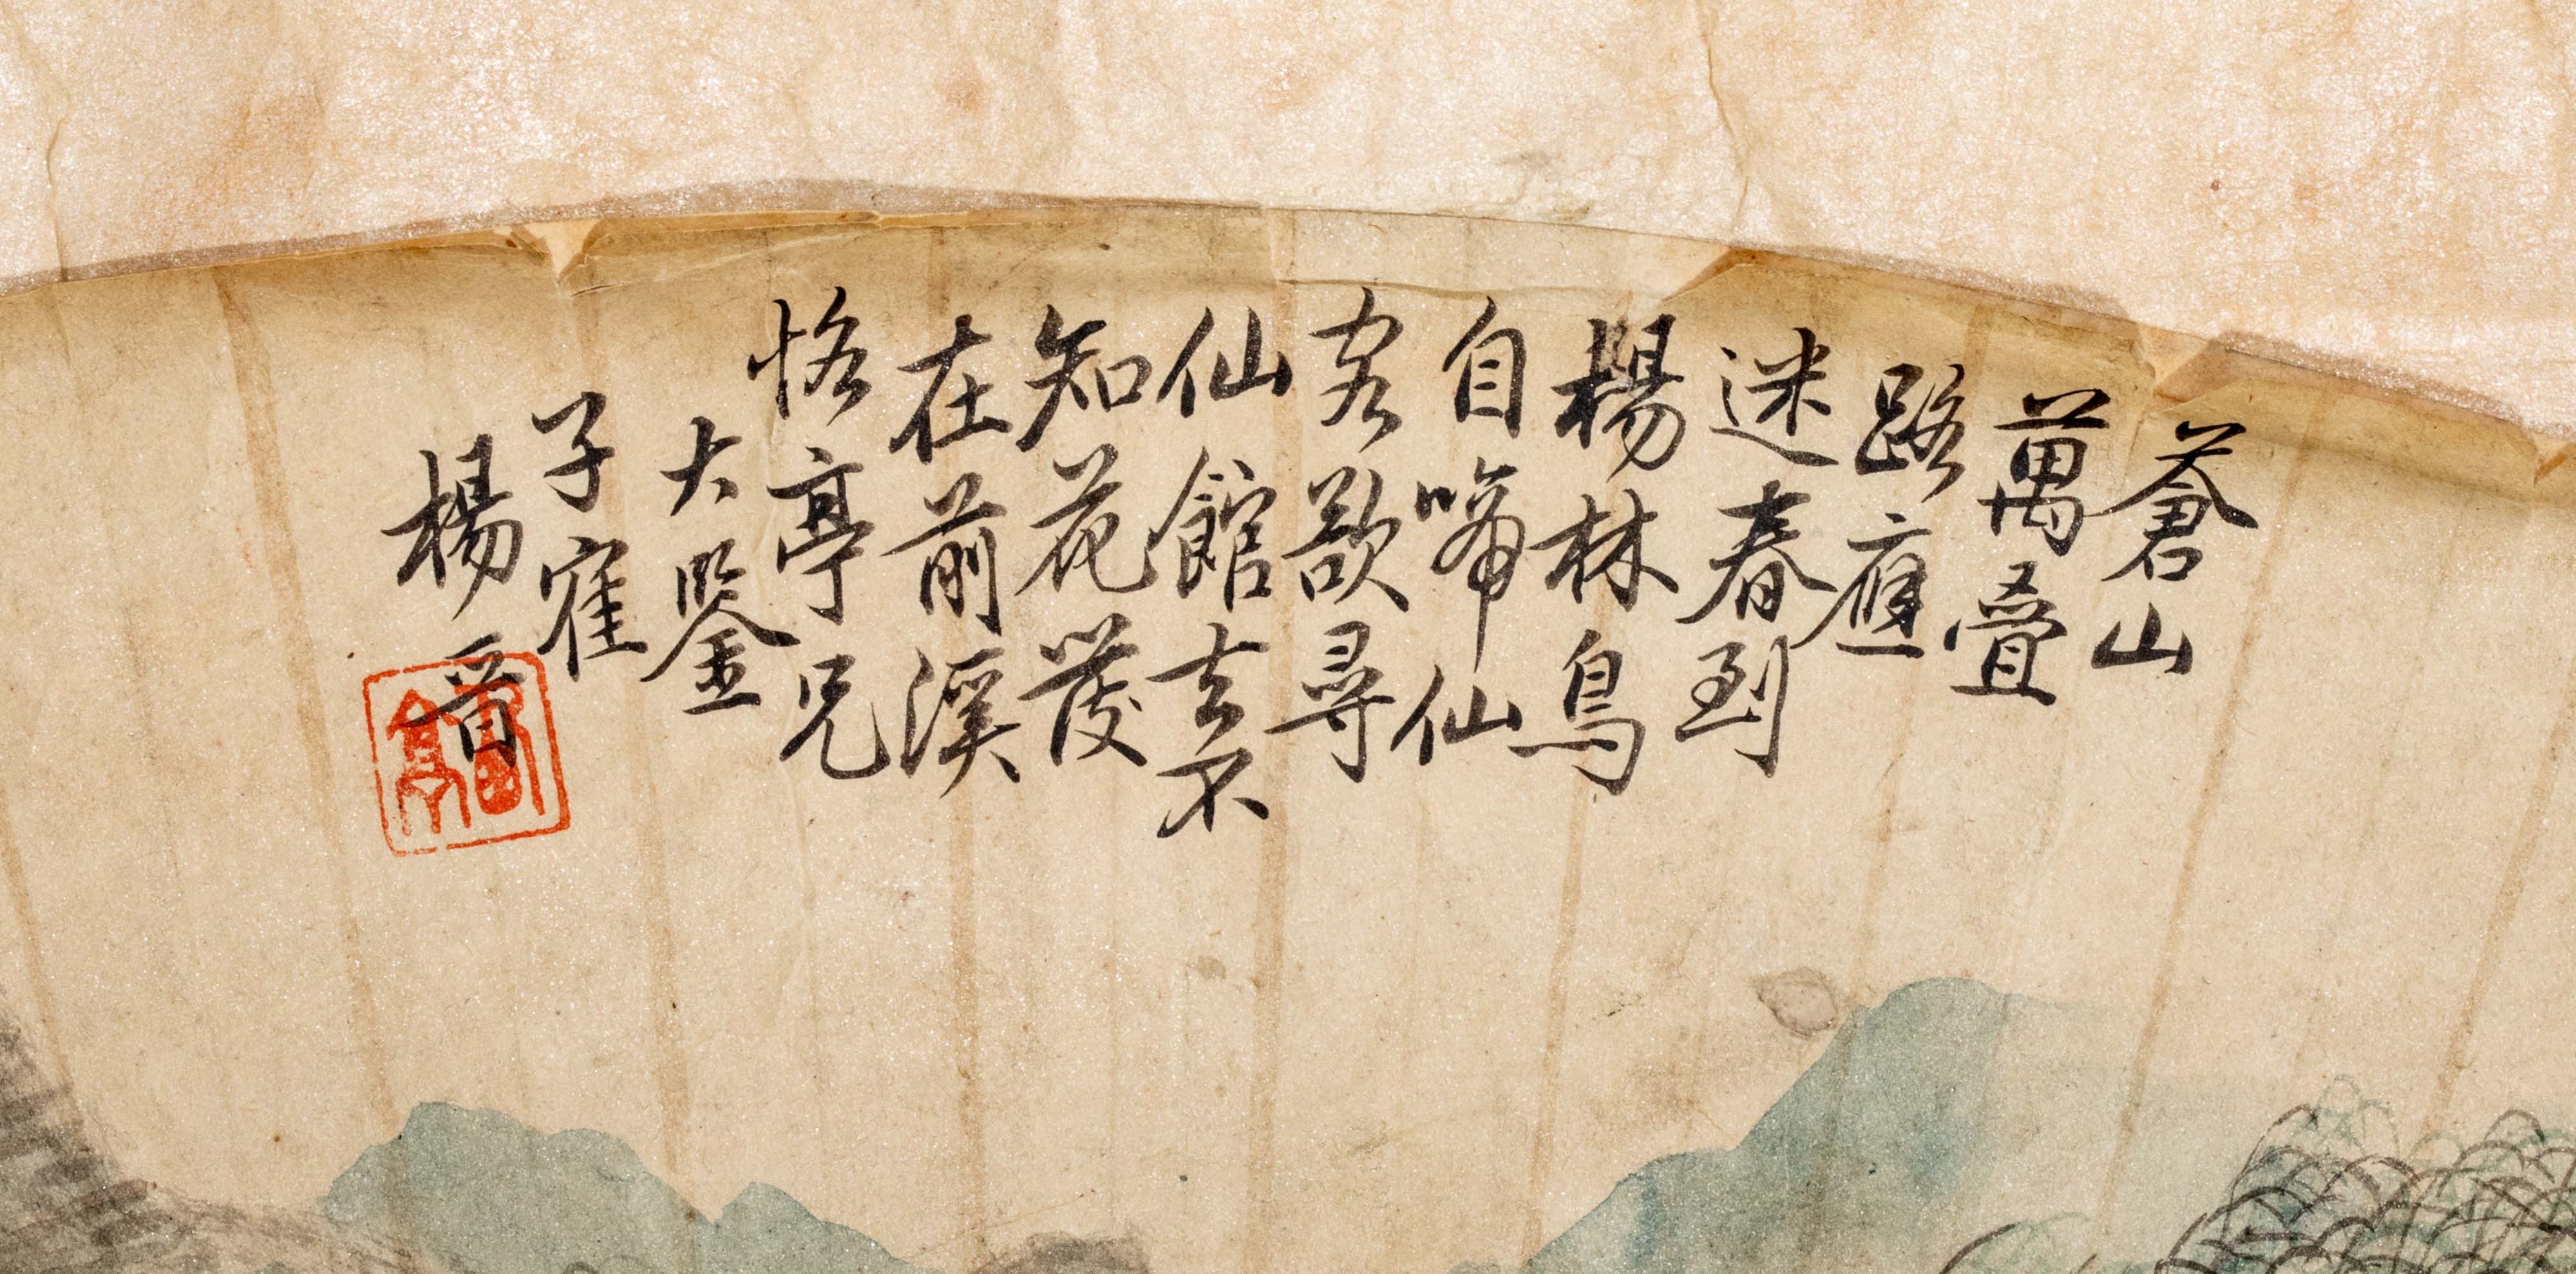 蒼山
萬疊
路應
迷春到
楊林鳥
自啼仙
客欲尋
仙館去不
知花發
在前溪
恪亭兄
大鑒
子隺
楊晉